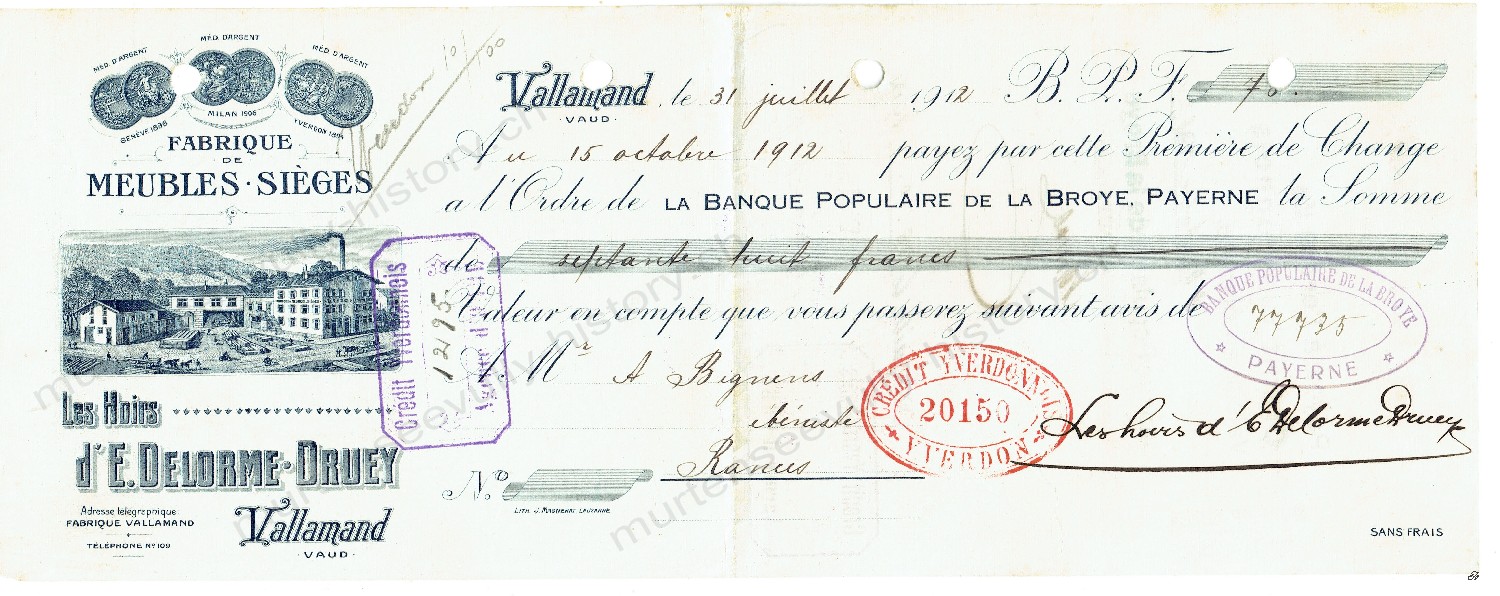 MÉD. D'ARGENT
MÉD. D'ARGENT
MÉD. D'ARGENT
GENÈVE 1896
MILAN 1906
YVERDON 1894
FABRIQUE
DE
MEUBLES · SIÈGES
Yverdon 10/00
Vallamand, le 31 juillet 1912 B. P. F. 78.-
VAUD
Au 15 octobre 1912 payez par cette Première de Change
a l'Ordre de LA BANQUE POPULAIRE DE LA BROYE, PAYERNE la Somme
de septante huit francs
Valeur en compte que vous passerez suivant avis de
A Mr A Bignens
ébéniste
Rances
Crédit Yverdonnois
12195
BANQUE POPULAIRE DE LA BROYE
77735
PAYERNE
CRÉDIT YVERDONNOIS
20150
YVERDON
Les hoirs d'E Delorme Druey
Les Hoirs
d'E. DELORME-DRUEY
Adresse télégraphique
FABRIQUE VALLAMAND
TÉLÉPHONE Nº 109
Vallamand
· VAUD ·
N.º
LITH. J. MAGNENAT LAUSANNE
SANS FRAIS
murtenseevully-history.ch